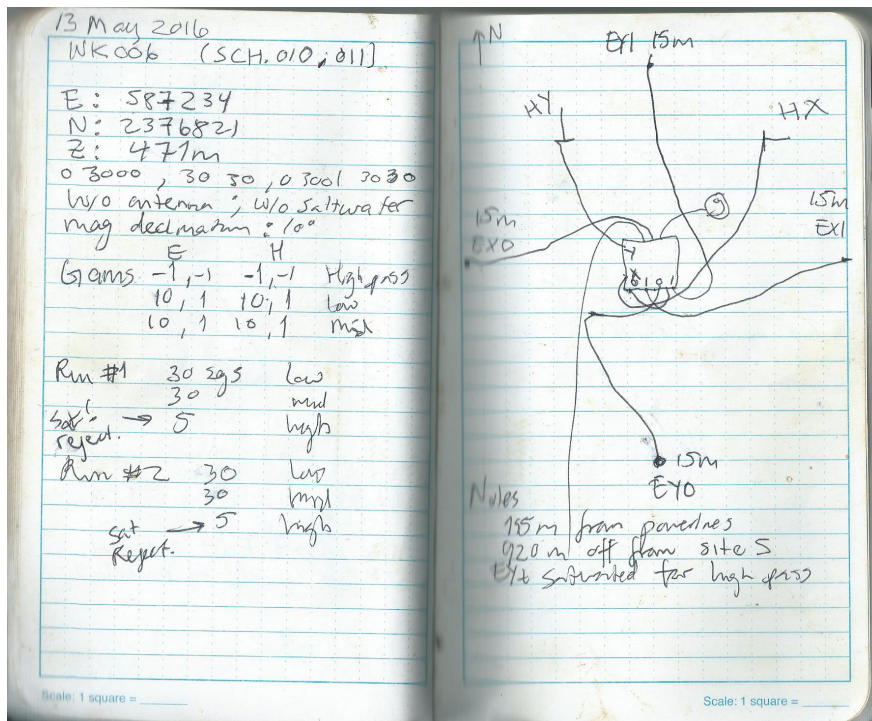 13 May 2016
WK006 (SCH. 010, 011]
E: 587234
N: 2376821
Z: 471m
03000, 30 30, 03001 3030
w/o antenna; w/o Saltwater
mag declination: 10°
E H
Gains -1,-1 -1,-1 High pass
10, 1 10, 1 low
10, 1 10, 1 mid
Run #1 30 sgs low
30 mid
sat. reject. → 5 high
Run #2 30 low
30 mid
sat Reject. → 5 high
Scale: 1 square =
N
EY1 15m
HY
HX
g
15m
EX0
15m
EX1
15m
EY0
Notes
m from powerlines
920 m off from site 5
saturated for high pass
Scale: 1 square =